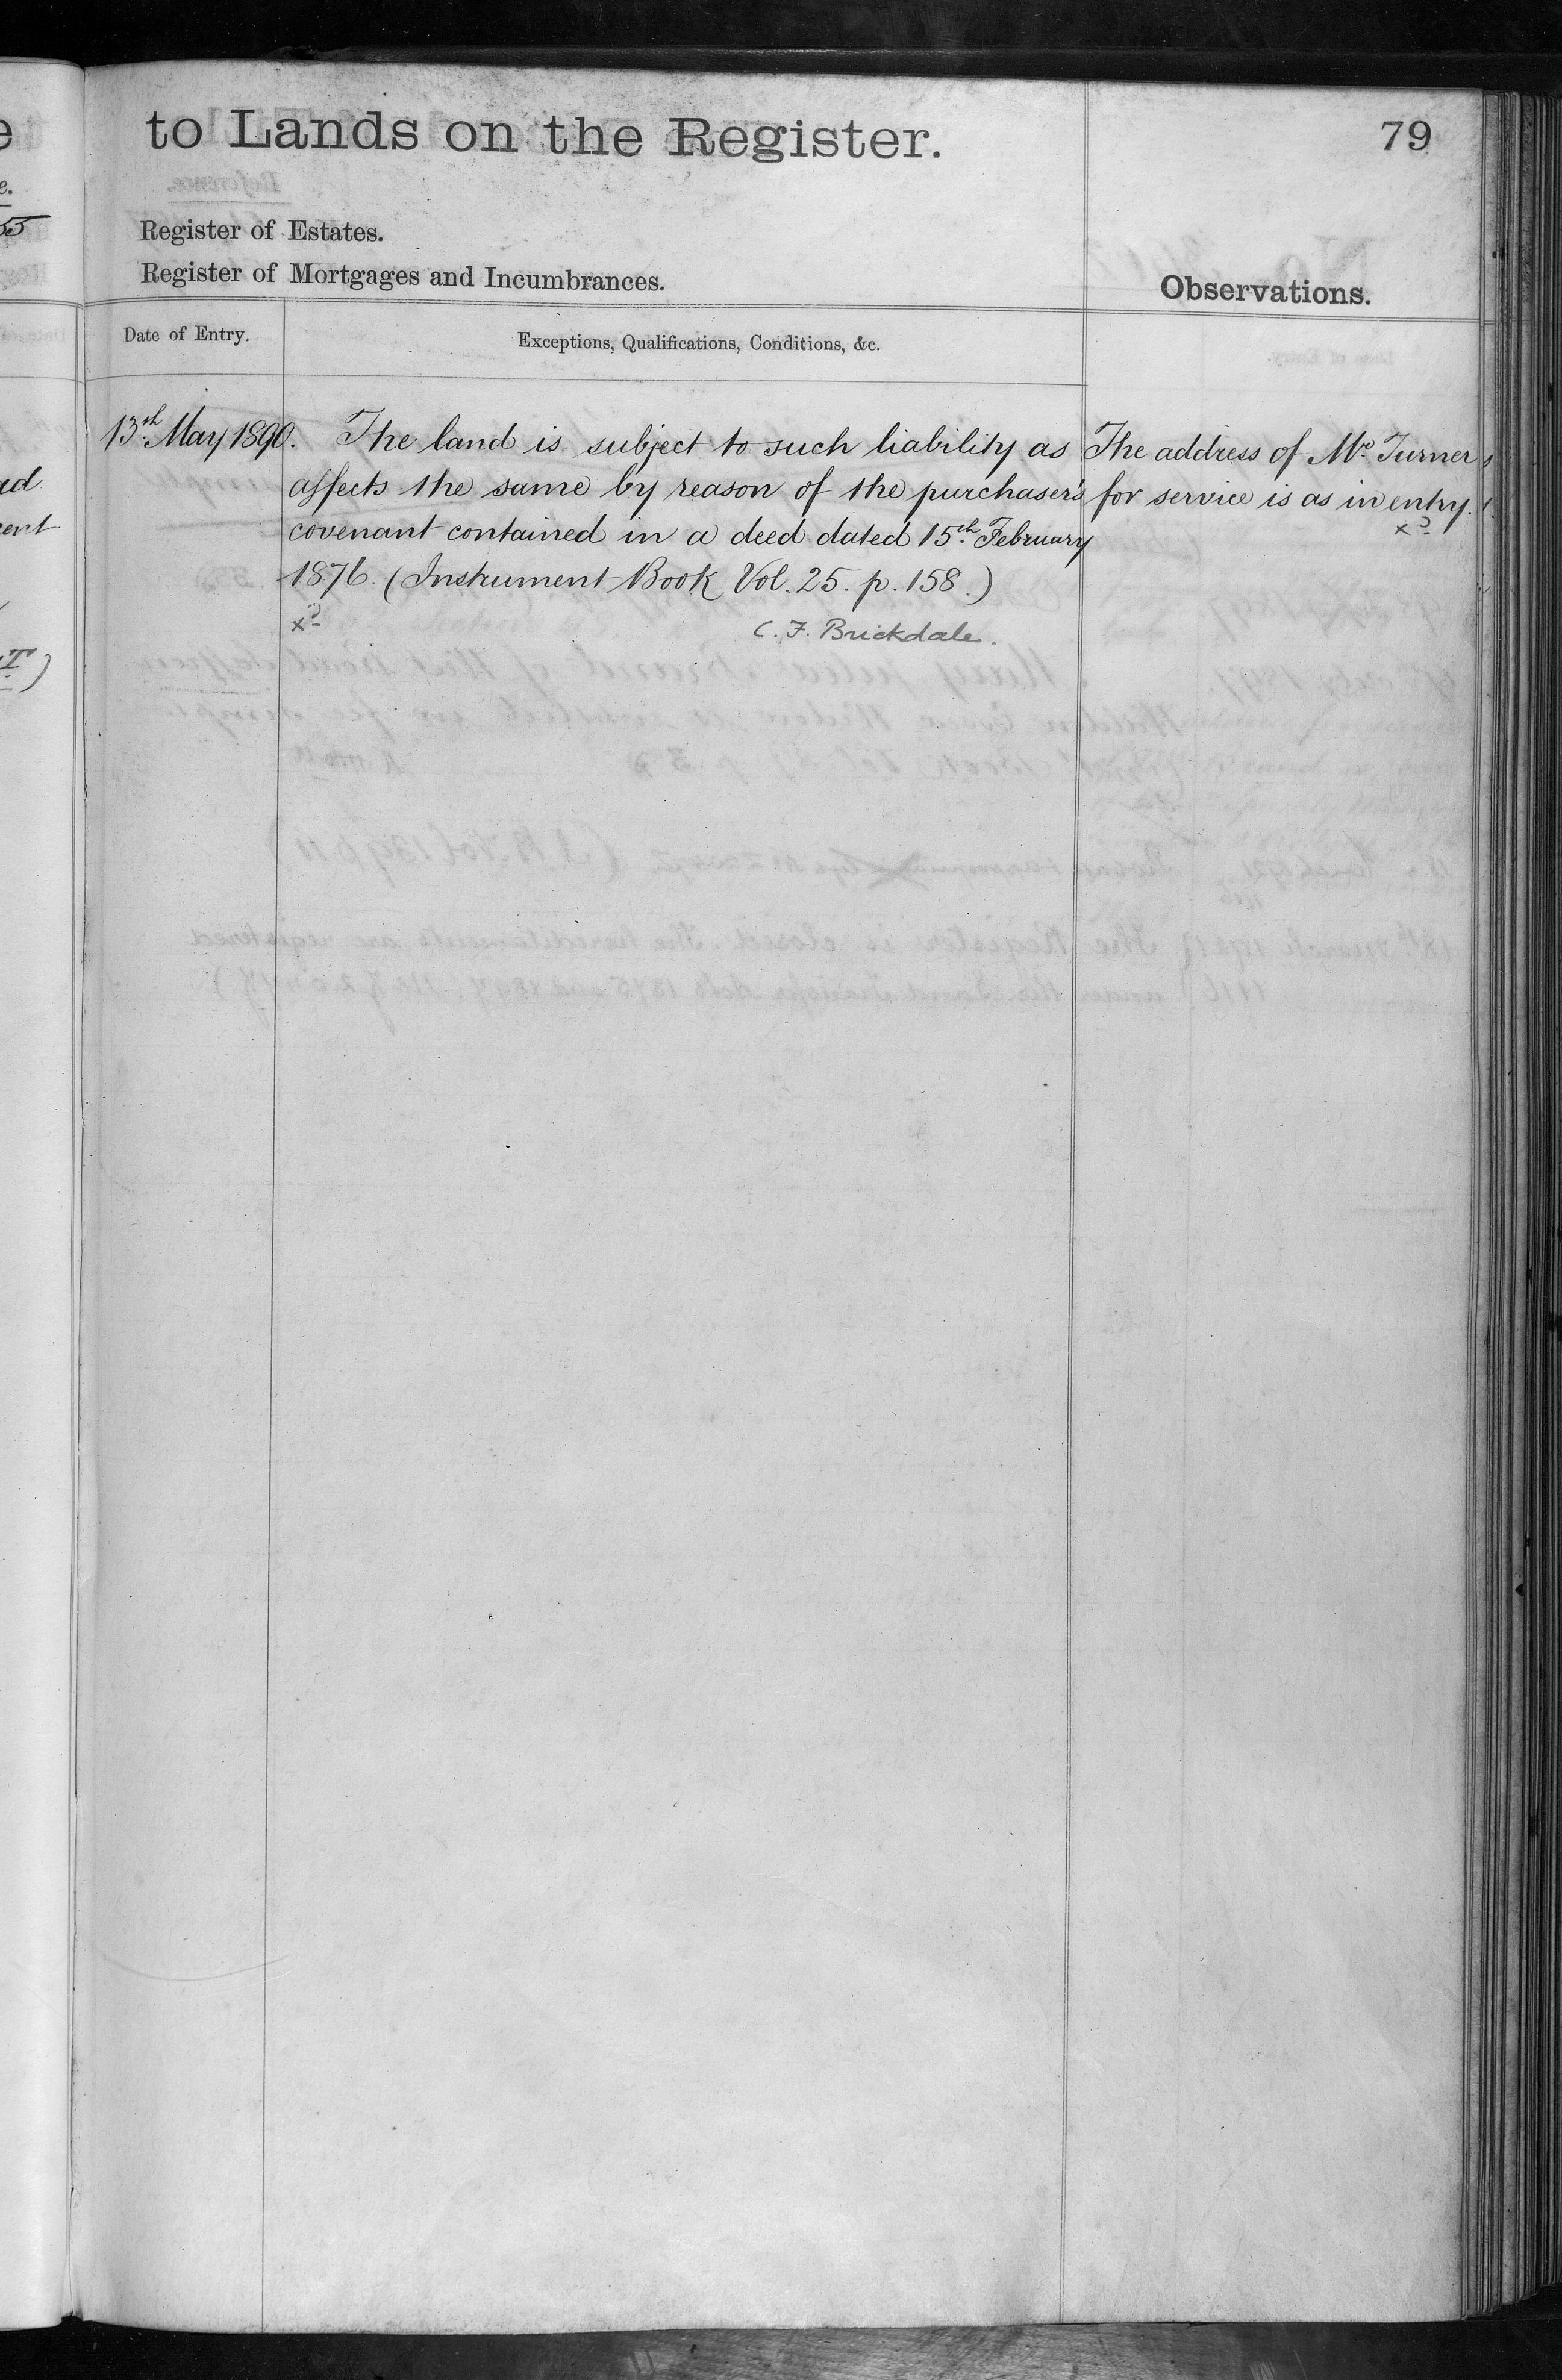 to Lands on the Register.
79
Register of Estates.
Register of Mortgages and Incumbrances.
Observations.
Date of Entry.
Exceptions, Qualifications, Conditions, &c.
13th May 1890.
The land is subject to such liability as
affects the same by reason of the purchaser's
covenant contained in a deed dated 15th February
1876. (Instrument Book Vol. 25. p. 158.)
C. F. Brickdale.
The address of Mr Turner
for service is as in entry.